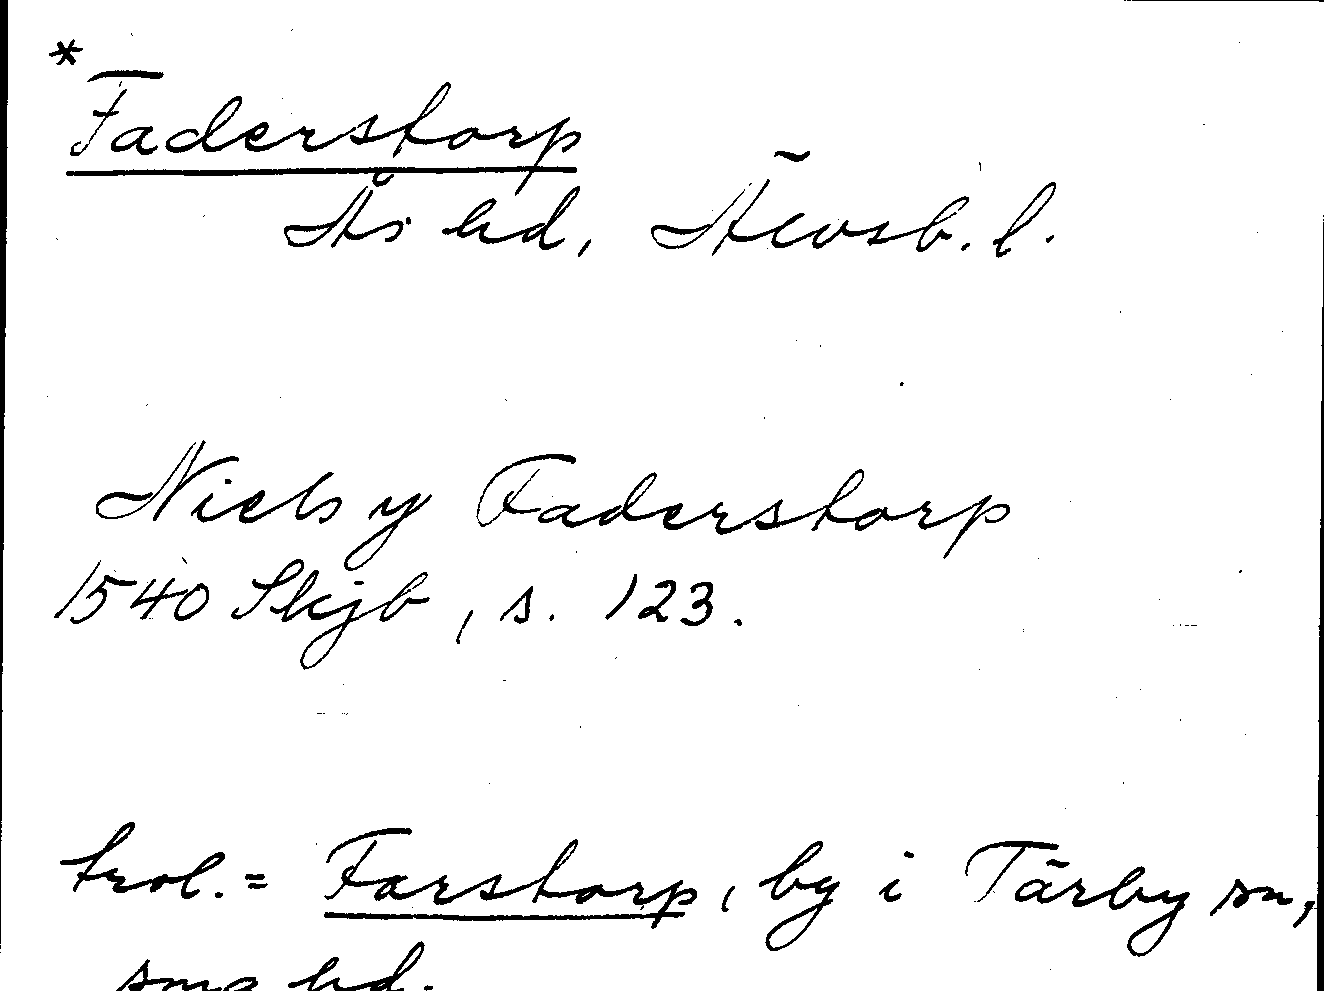 *
Faderstorp
Ås hd, Älvsb. l.
Niels y Faderstorp
1540 Skjb, s. 123.
trol. = Farstorp, by i Tärby sn,
sma hd.